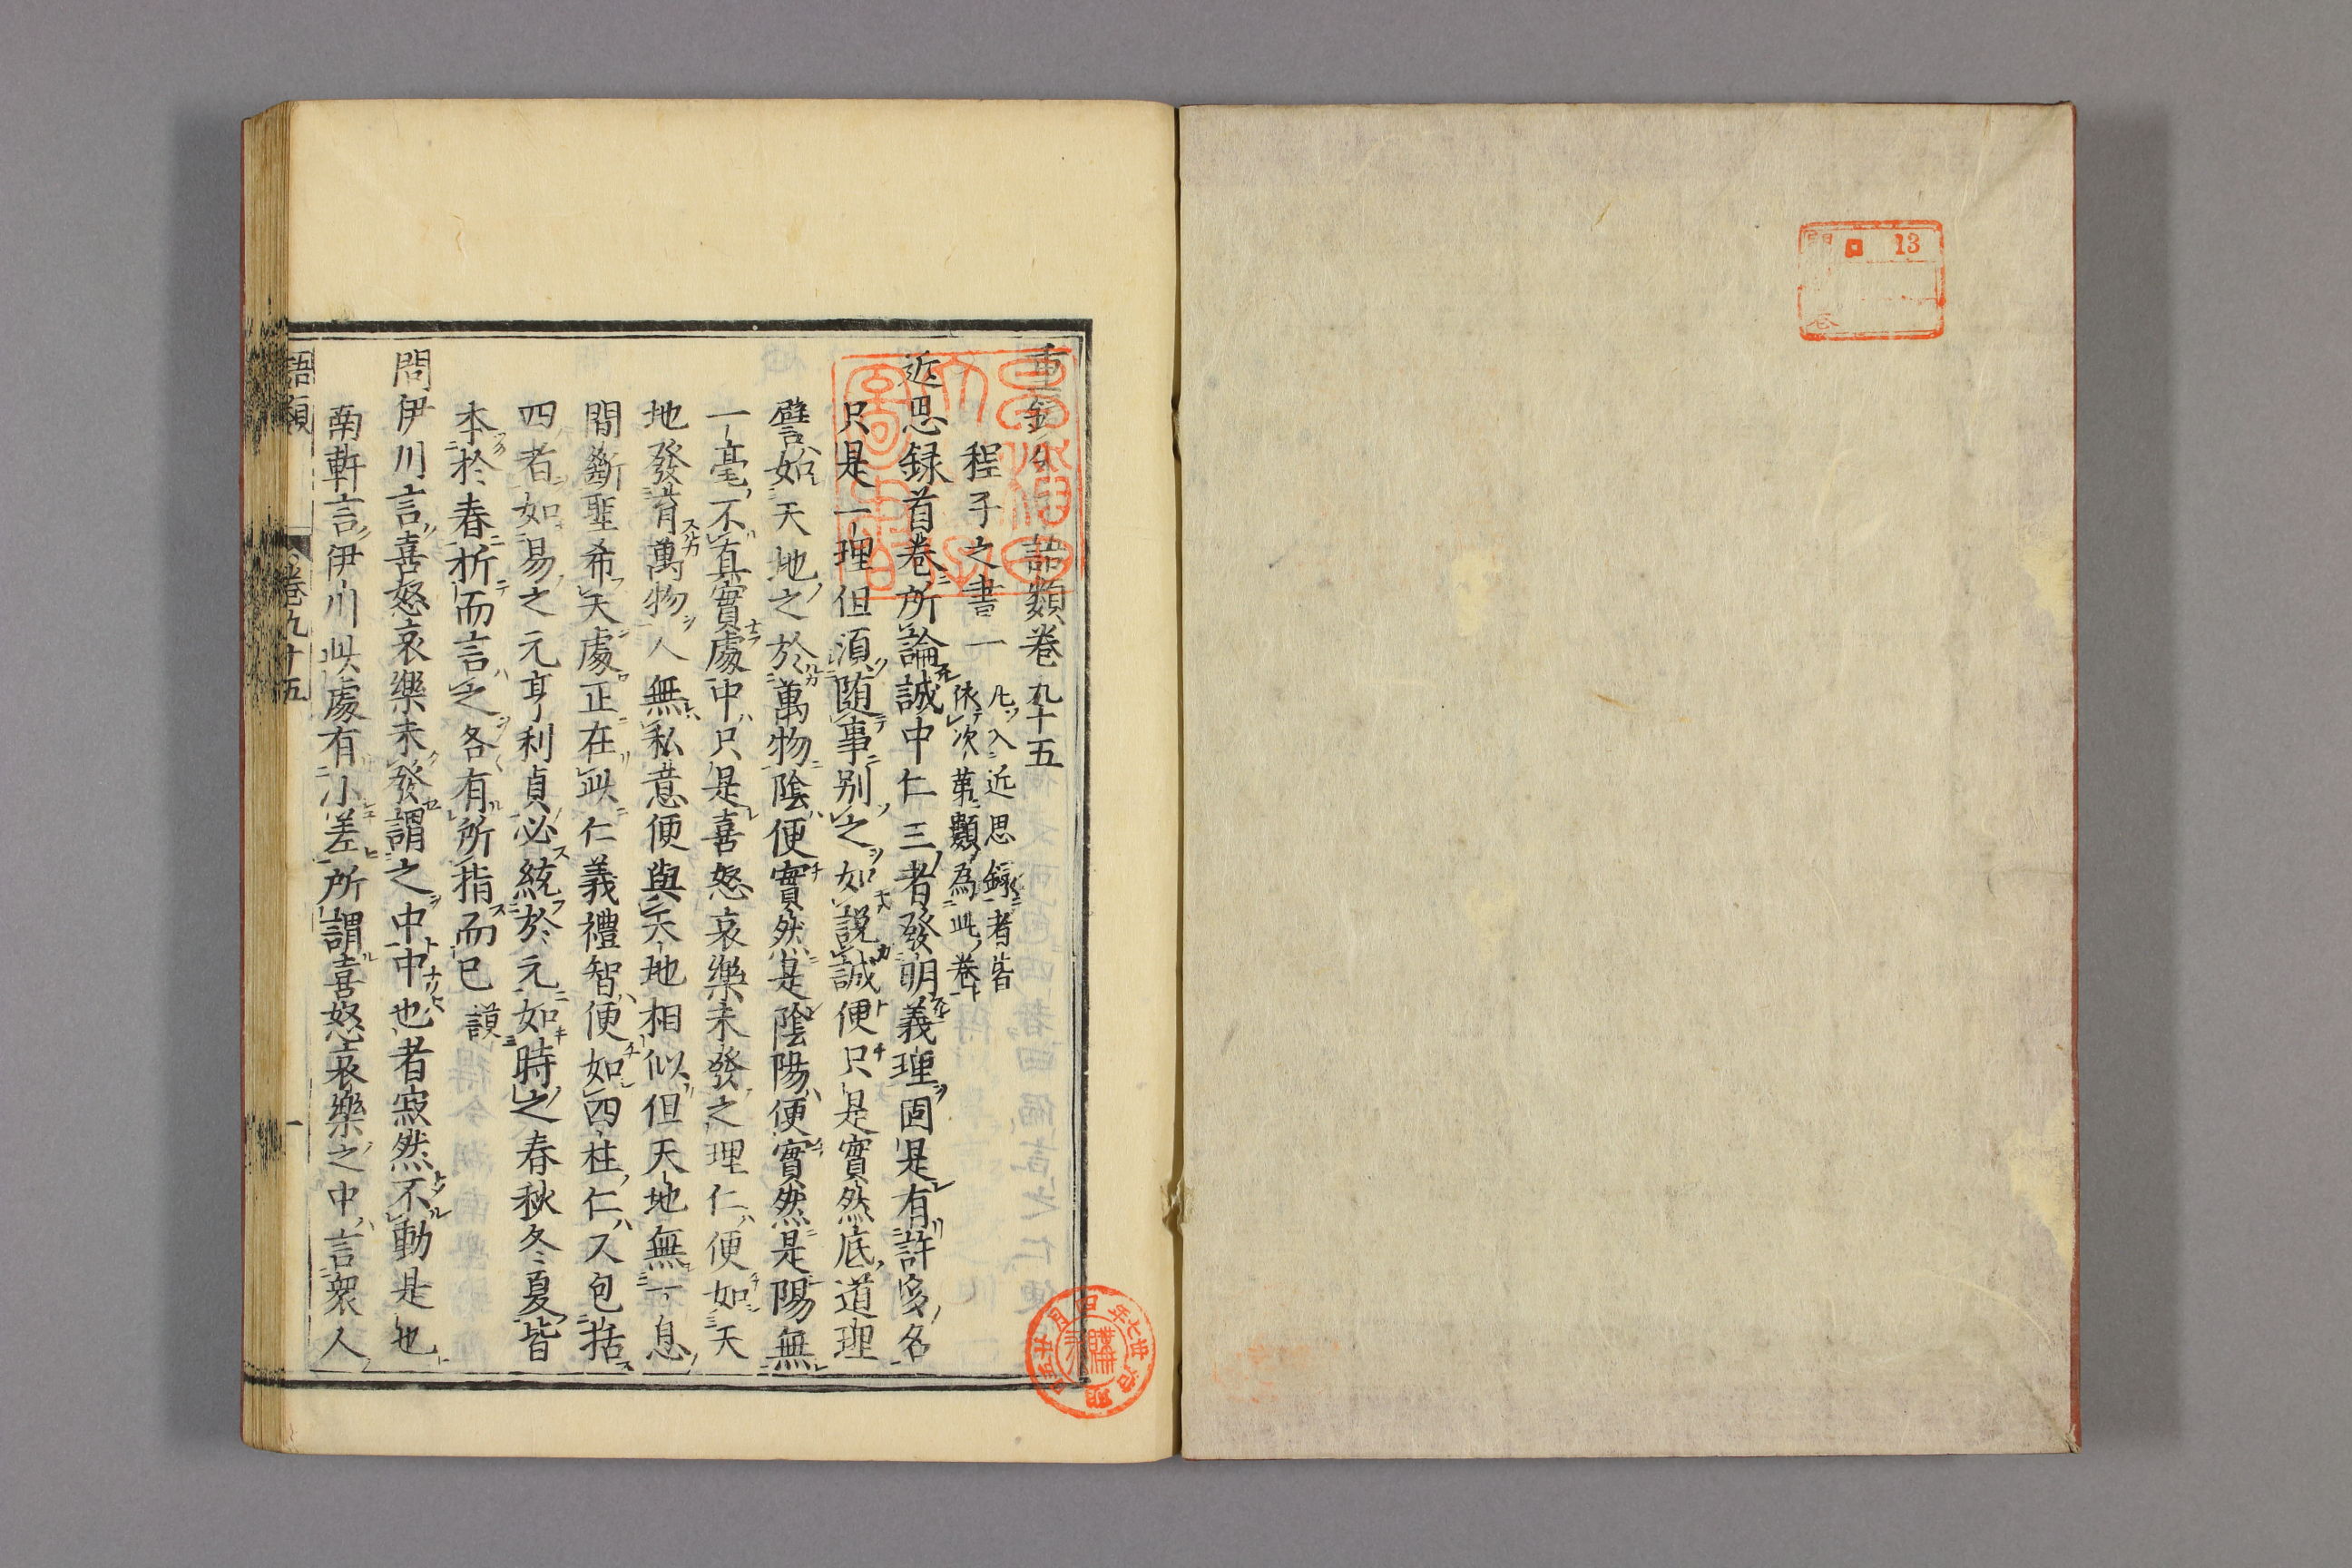 13
語類卷九十五
程子之書一
凡入近思錄者皆
依次第類為此卷
近思録首卷所論誠中仁三者發明義理固是有許多名
只是一理但須隨事别之如説誠便只是實然底道理
譬如天地之於萬物陰便實然是陰陽便實然是陽無
一毫不真實處中只是喜怒哀樂未發之理仁便如天
地發育萬物人無私意便與天地相似但天地無一息
間斷聖希天處正在此仁義禮智便如四柱仁又包括
四者如易之元亨利貞必統於元如時之春秋冬夏皆
本於春析而言之各有所指而已 謨
問伊川言喜怒哀樂未發謂之中中也者寂然不動是也
南軒言伊川此處有小差所謂喜怒哀樂之中言衆人
語類 卷九十五 一